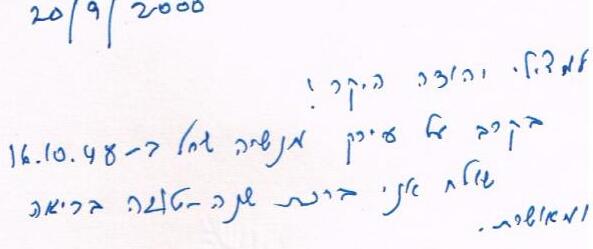 20/9/2000
למצילי יהודה היקר!
בקרב על עירק מנשיה שחל ב-16.10.48
שולח אני ברכת שנה-טובה בריאה
ומאושרת.